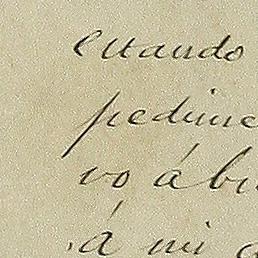 cuando
pedime
vo á bu
á mi a